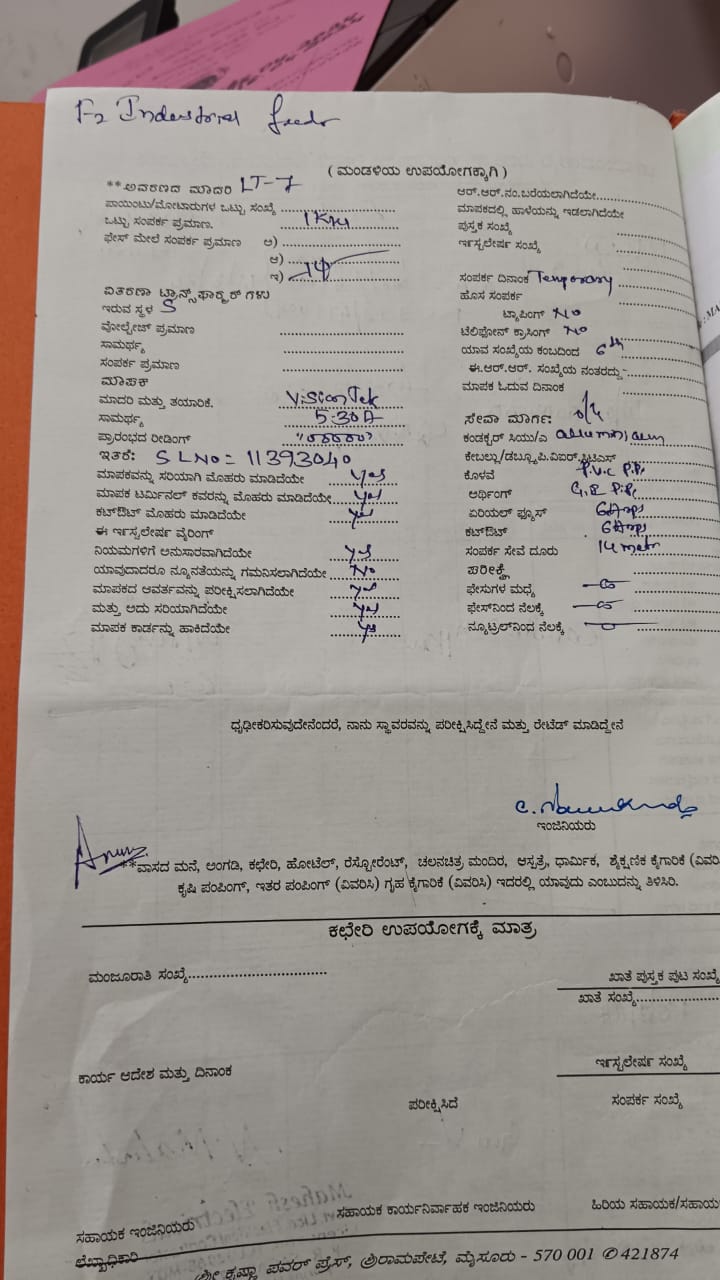 F2 Industrial feeder
( ಮಂಡಳಿಯ ಉಪಯೋಗಕ್ಕಾಗಿ )
**ಆವರಣದ ಮಾದರಿ LT-7
ಪಾಯಿಂಟು/ಮೋಟಾರುಗಳ ಒಟ್ಟು ಸಂಖ್ಯೆ
ಒಟ್ಟು ಸಂಪರ್ಕ ಪ್ರಮಾಣ. 1KW
ಫೇಸ್ ಮೇಲೆ ಸಂಪರ್ಕ ಪ್ರಮಾಣ ಅ)
ಆ)
ಇ)
ವಿತರಣಾ ಟ್ರಾನ್ಸ್‌ಫಾರ್ಮರ್ ಗಳು
ಇರುವ ಸ್ಥಳ S
ವೋಲ್ಟೇಜ್ ಪ್ರಮಾಣ
ಸಾಮರ್ಥ್ಯ
ಸಂಪರ್ಕ ಪ್ರಮಾಣ
ಮಾಪಕ
ಮಾದರಿ ಮತ್ತು ತಯಾರಿಕೆ. VisionTek
ಸಾಮರ್ಥ್ಯ 5-30A
ಪ್ರಾರಂಭದ ರೀಡಿಂಗ್
ಇತರೆ: SLNo = 11393040
ಮಾಪಕವನ್ನು ಸರಿಯಾಗಿ ಮೊಹರು ಮಾಡಿದೆಯೇ yes
ಮಾಪಕ ಟರ್ಮಿನಲ್ ಕವರನ್ನು ಮೊಹರು ಮಾಡಿದೆಯೇ yes
ಕಟ್‌ಔಟ್ ಮೊಹರು ಮಾಡಿದೆಯೇ yes
ಈ ಇನ್ಸ್ಟಲೇಷನ್ ವೈರಿಂಗ್
ನಿಯಮಗಳಿಗೆ ಅನುಸಾರವಾಗಿದೆಯೇ yes
ಯಾವುದಾದರೂ ನ್ಯೂನತೆಯನ್ನು ಗಮನಿಸಲಾಗಿದೆಯೇ No
ಮಾಪಕದ ಆವರ್ತವನ್ನು ಪರೀಕ್ಷಿಸಲಾಗಿದೆಯೇ yes
ಮತ್ತು ಅದು ಸರಿಯಾಗಿದೆಯೇ yes
ಮಾಪಕ ಕಾರ್ಡನ್ನು ಹಾಕಿದೆಯೇ yes
ಆರ್.ಆರ್.ನಂ.ಬರೆಯಲಾಗಿದೆಯೇ
ಮಾಪಕದಲ್ಲಿ ಹಾಳೆಯನ್ನು ಇಡಲಾಗಿದೆಯೇ
ಪುಸ್ತಕ ಸಂಖ್ಯೆ
ಇನ್ಸ್ಟಲೇಷನ್ ಸಂಖ್ಯೆ
ಸಂಪರ್ಕ ದಿನಾಂಕ Temporary
ಹೊಸ ಸಂಪರ್ಕ
ಟ್ಯಾಪಿಂಗ್ NO
ಟೆಲಿಫೋನ್ ಕ್ರಾಸಿಂಗ್ NO
ಯಾವ ಸಂಖ್ಯೆಯ ಕಂಬದಿಂದ 6th
ಈ.ಆರ್.ಆರ್. ಸಂಖ್ಯೆಯ ನಂತರದ್ದು
ಮಾಪಕ ಓದುವ ದಿನಾಂಕ
ಸೇವಾ ಮಾರ್ಗ: o/h
ಕಂಡಕ್ಟರ್ ಸಿಯು/ಎ aluminium
ಕೇಬಲ್ಲು/ಡಬ್ಲ್ಯೂಪಿ.ವಿಐಆರ್.ಪಿಟಿಎಸ್
ಕೊಳವೆ P.V.C Pipe
ಅರ್ಥಿಂಗ್ G.I Pipe
ಏರಿಯಲ್ ಫ್ಯೂಸ್ 6Amps
ಕಟ್‌ಔಟ್ 6Amps
ಸಂಪರ್ಕ ಸೇವೆ ದೂರು 14 metr
ಪರೀಕ್ಷೆ
ಫೇಸುಗಳ ಮಧ್ಯೆ
ಫೇಸ್‌ನಿಂದ ನೆಲಕ್ಕೆ
ನ್ಯೂಟ್ರಲ್‌ನಿಂದ ನೆಲಕ್ಕೆ
ಧೃಢೀಕರಿಸುವುದೇನೆಂದರೆ, ನಾನು ಸ್ಥಾವರವನ್ನು ಪರೀಕ್ಷಿಸಿದ್ದೇನೆ ಮತ್ತು ರೇಟೆಡ್ ಮಾಡಿದ್ದೇನೆ
ಇಂಜಿನಿಯರು
**ವಾಸದ ಮನೆ, ಅಂಗಡಿ, ಕಛೇರಿ, ಹೋಟೆಲ್, ರೆಸ್ಟೋರೆಂಟ್, ಚಲನಚಿತ್ರ ಮಂದಿರ, ಆಸ್ಪತ್ರೆ, ಧಾರ್ಮಿಕ, ಶೈಕ್ಷಣಿಕ ಕೈಗಾರಿಕೆ (ವಿವರಿ
ಕೃಷಿ ಪಂಪಿಂಗ್, ಇತರ ಪಂಪಿಂಗ್ (ವಿವರಿಸಿ) ಗೃಹ ಕೈಗಾರಿಕೆ (ವಿವರಿಸಿ) ಇದರಲ್ಲಿ ಯಾವುದು ಎಂಬುದನ್ನು ತಿಳಿಸಿರಿ.
ಕಛೇರಿ ಉಪಯೋಗಕ್ಕೆ ಮಾತ್ರ
ಮಂಜೂರಾತಿ ಸಂಖ್ಯೆ
ಖಾತೆ ಪುಸ್ತಕ ಪುಟ ಸಂಖ್ಯೆ
ಖಾತೆ ಸಂಖ್ಯೆ
ಕಾರ್ಯ ಆದೇಶ ಮತ್ತು ದಿನಾಂಕ
ಇನ್ಸ್ಟಲೇಷನ್ ಸಂಖ್ಯೆ
ಪರೀಕ್ಷಿಸಿದೆ
ಸಂಪರ್ಕ ಸಂಖ್ಯೆ
ಸಹಾಯಕ ಇಂಜಿನಿಯರು
ಸಹಾಯಕ ಕಾರ್ಯನಿರ್ವಾಹಕ ಇಂಜಿನಿಯರು
ಹಿರಿಯ ಸಹಾಯಕ/ಸಹಾಯ
ಲೆಖ್ಖಾಧಿಕಾರಿ
ಶ್ರೀ ಕೃಷ್ಣಾ ಪವರ್ ಪ್ರೆಸ್, ಶ್ರೀರಾಮಪೇಟೆ, ಮೈಸೂರು - 570 001 ✆ 421874